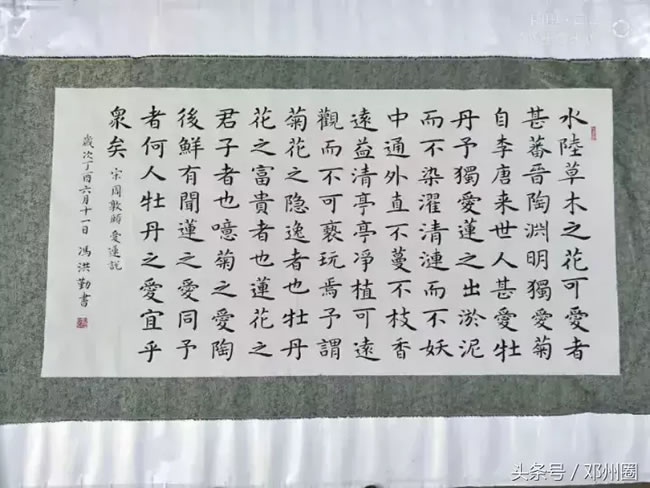 水陸草木之花可愛者
甚蕃晉陶淵明獨愛菊
自李唐来世人甚愛牡
丹予獨愛蓮之出淤泥
而不染濯清漣而不妖
中通外直不蔓不枝香
遠益清亭亭凈植可遠
觀而不可褻玩焉予謂
菊花之隐逸者也牡丹
花之富貴者也蓮花之
君子者也噫菊之愛陶
後鮮有聞蓮之愛同予
者何人牡丹之愛宜乎
眾矣
宋周敦頤 愛蓮説
歲次丁酉六月十一日 馮洪勤書
头条号／邓州圈